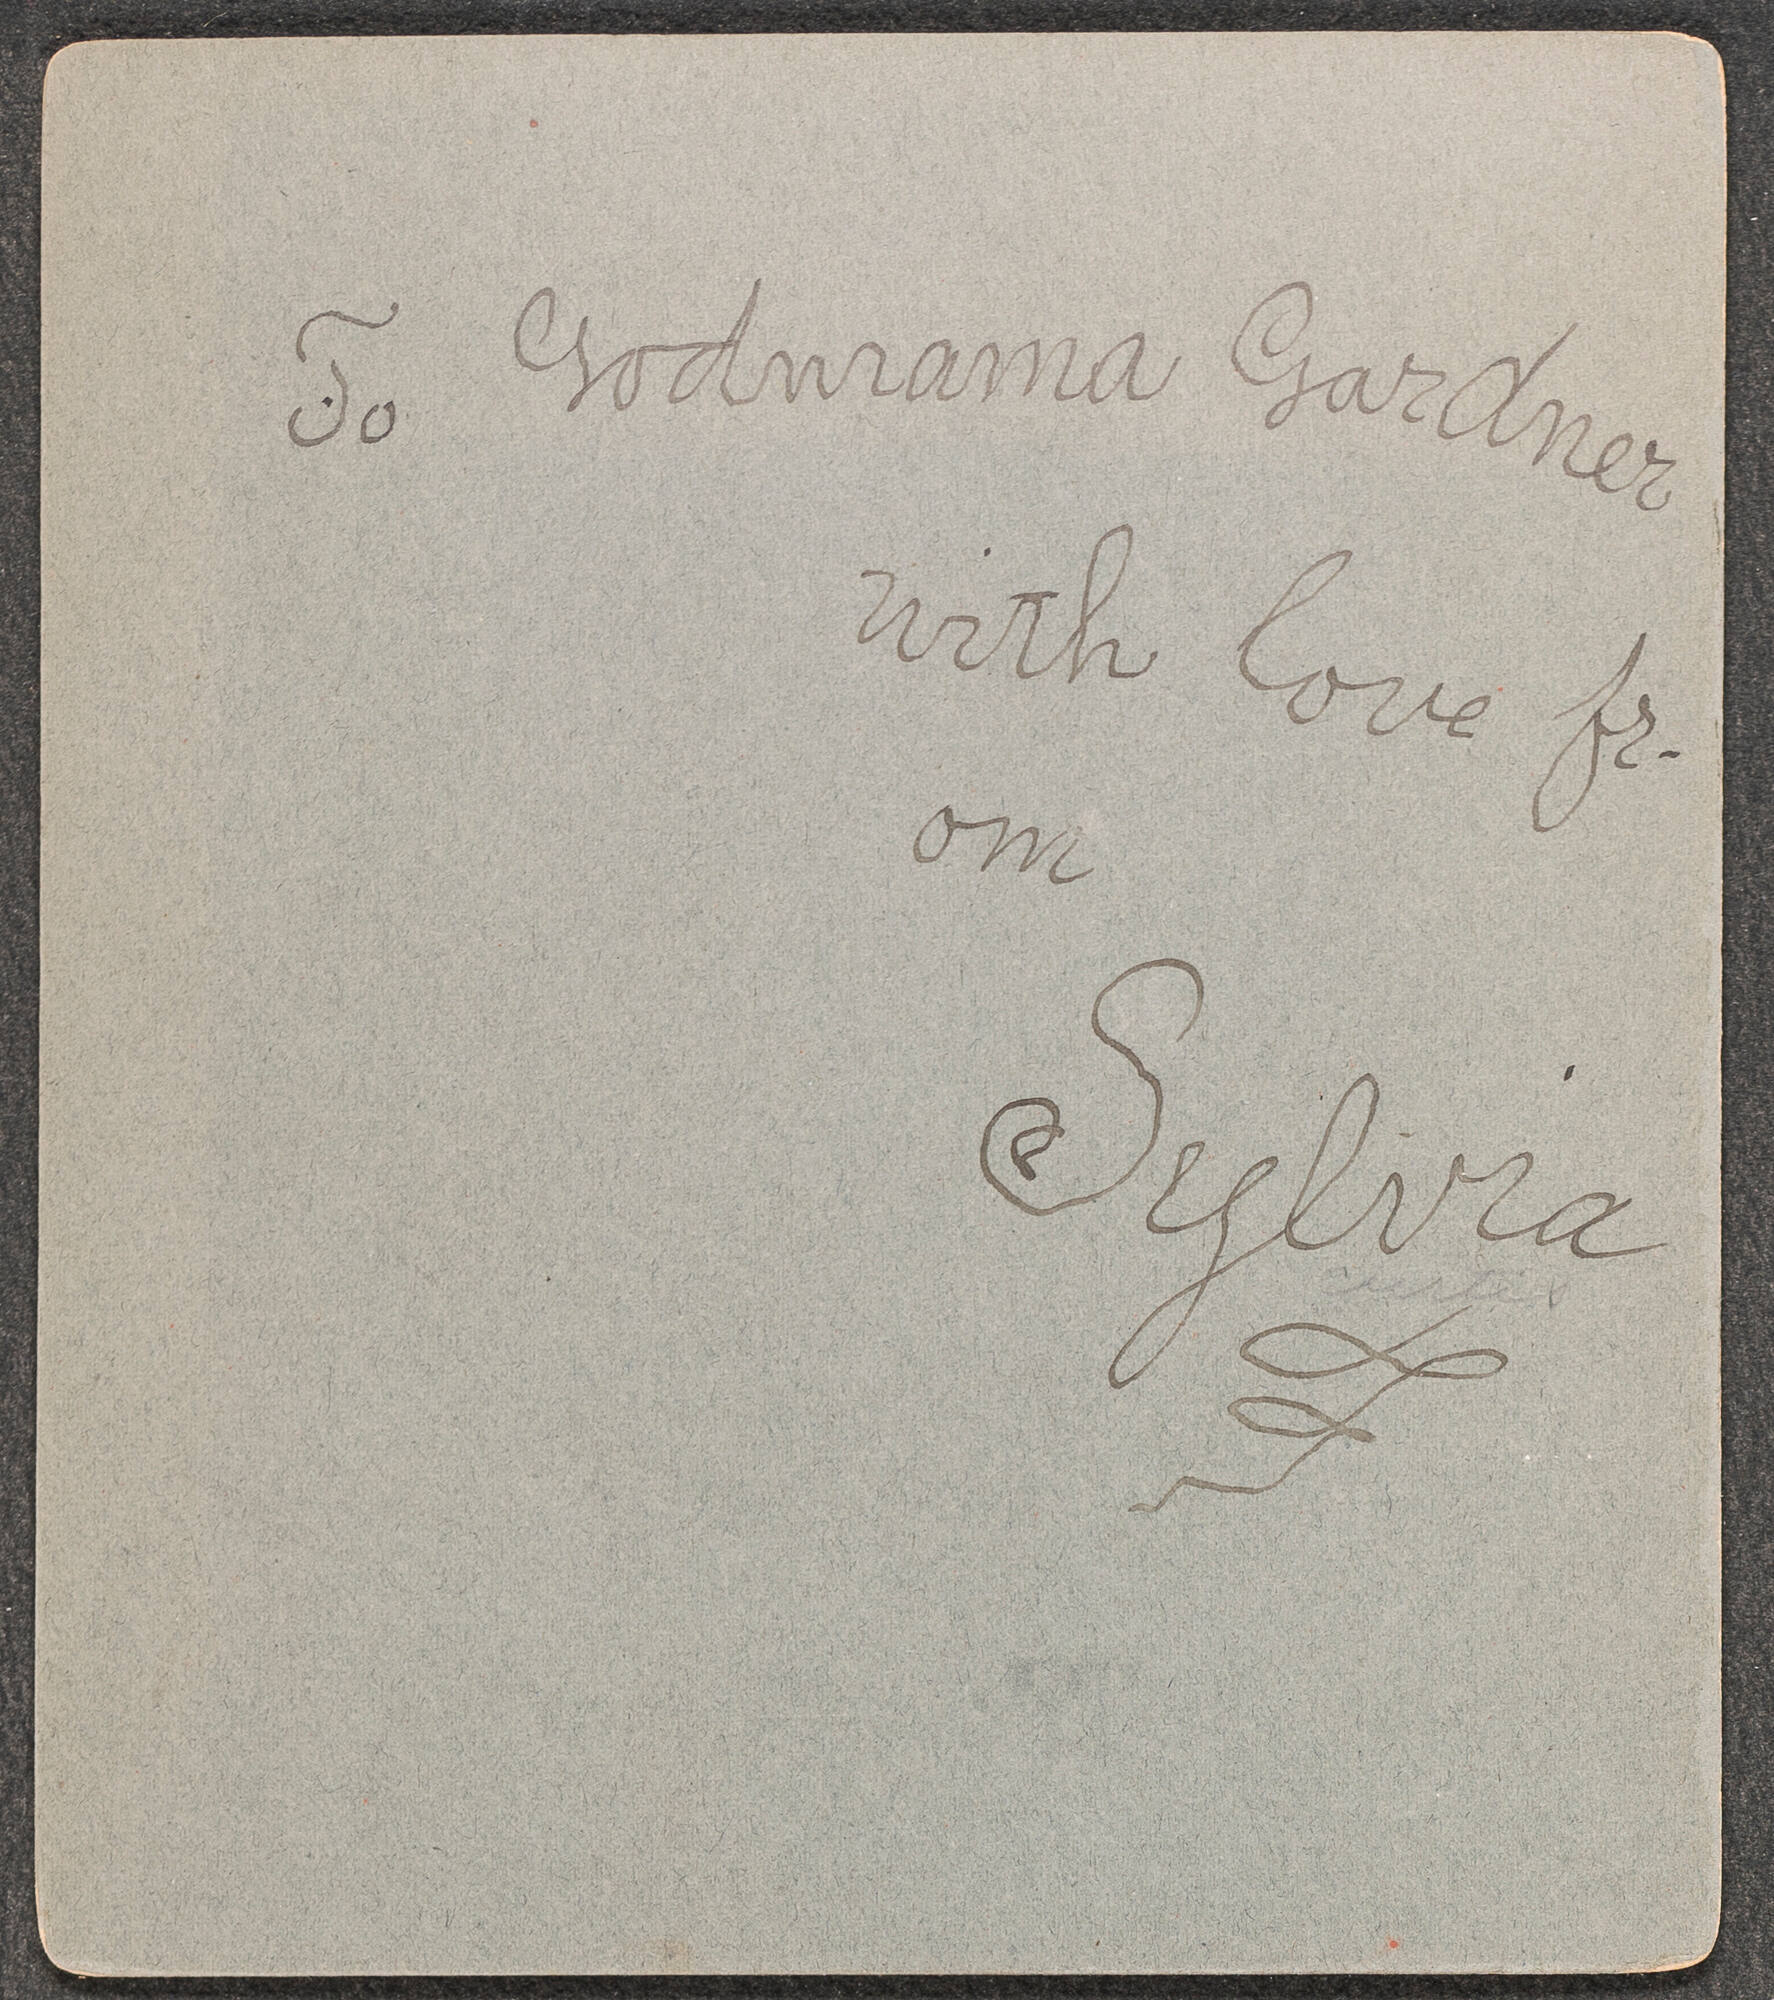 To Godmama Gardner
with love fr-
om
Sylvia
Curtis